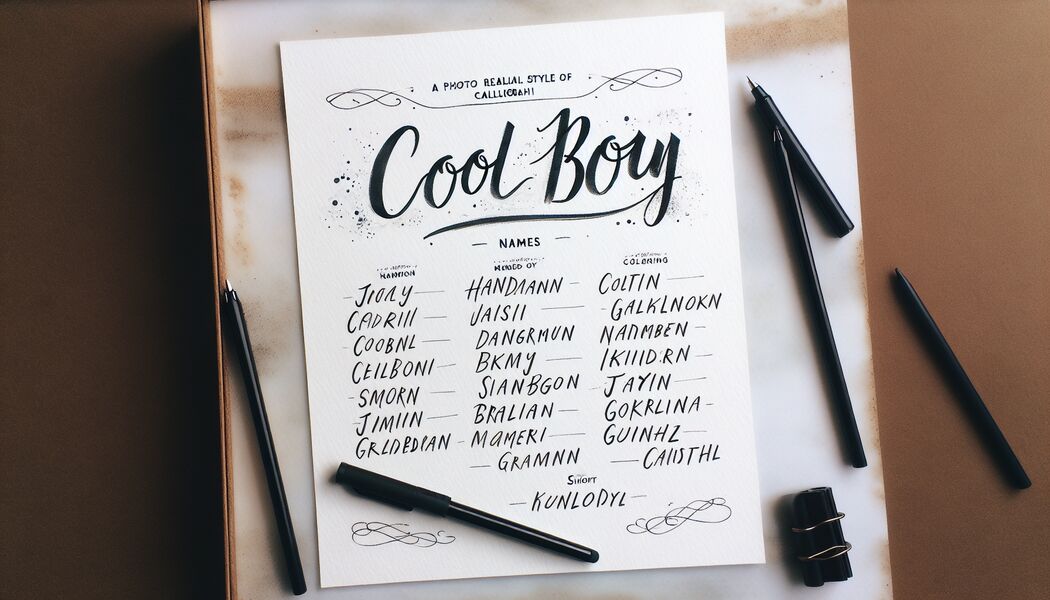 A PHOTO REALIAL STYLE OF
CALLIGRAHI
Cool Bouy
NAMES
JIOILY
CADRIII
COOBNL
CEILBONI
SMORN
JIMIIN
GRLDEDEAN
HANDIANN
JAISII
DANGRMUN
BKMY
SIANBGON
BRALIAN
MAMERI
GRAMNN
COLORING
COLTIN
GALKLNOKN
NADMBEN
IKIIID:RN
JAYIN
GOKRLINA
GUINHZ
CAIISTHL
KUNLODYL